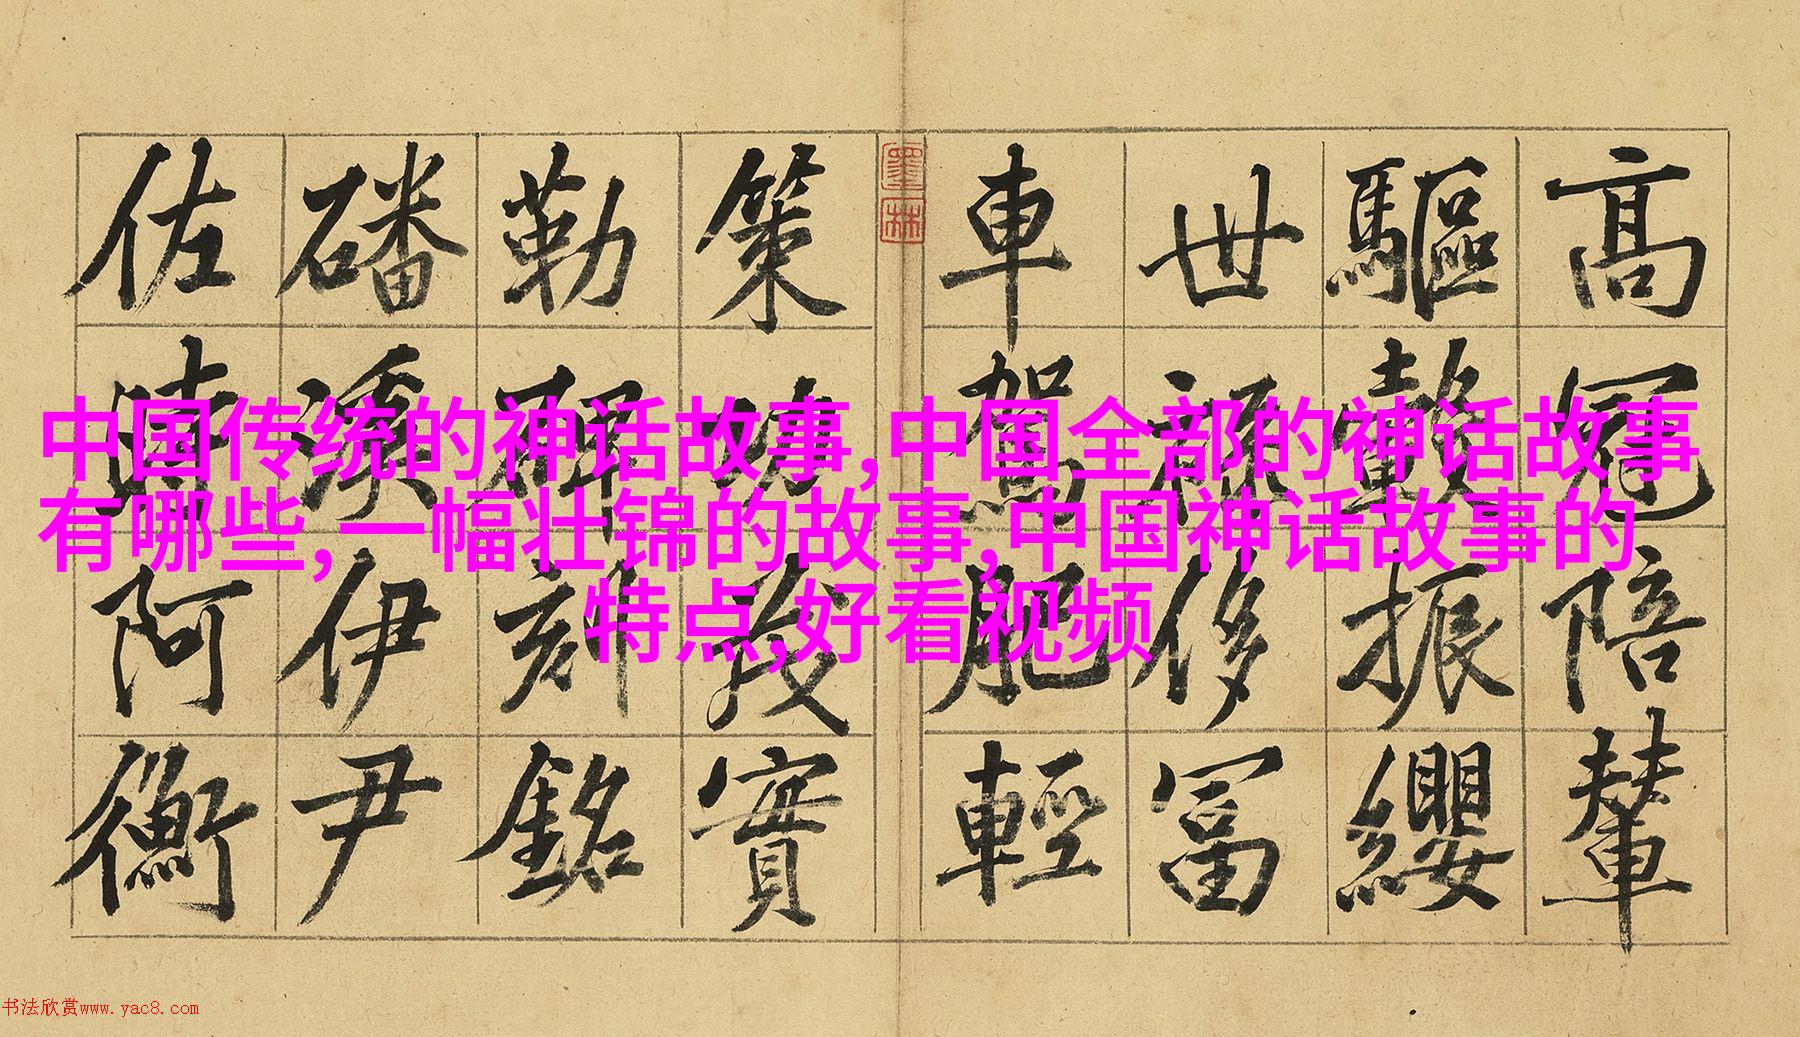 中国传统的神话故事,中国全部的神话故事
有哪些,一幅壮锦的故事,中国神话故事的
特点,好看视频
高冠陪輦
驅轂振纓
世祿侈冨
車駕肥輕
墨林
策功茂實
勒碑刻銘
磻溪伊尹
佐時阿衡
书法欣赏www.yac8.com